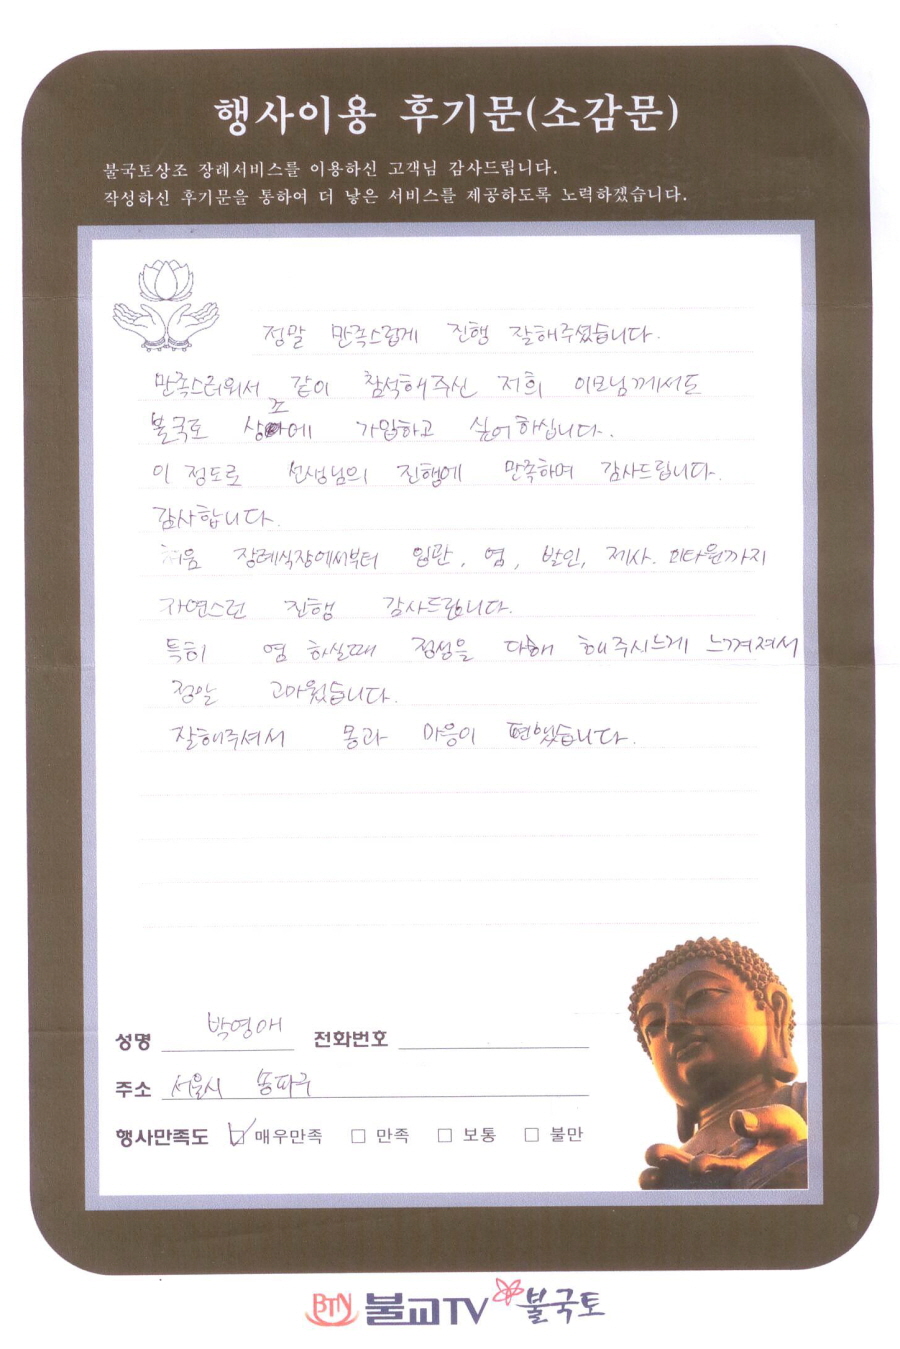 행사이용 후기문(소감문)
불국토상조 장례서비스를 이용하신 고객님 감사드립니다.
작성하신 후기문을 통하여 더 낳은 서비스를 제공하도록 노력하겠습니다.
정말 만족스럽게 진행 잘해주셨습니다.
만족스러워서 같이 참석해주신 저희 이모님께서도
불국토 상조에 가입하고 싶어하십니다.
이 정도로 선생님의 진행에 만족하며 감사드립니다.
감사합니다.
처음 장례식장에서부터 입관, 염, 발인, 제사. 화타원까지
자연스런 진행 감사드립니다.
특히 염 하실때 정성을 다해 해주시는게 느껴져서
정말 고마웠습니다.
잘해주셔서 몸과 마음이 편했습니다.
성명 박영애 전화번호
주소 서울시 송파구
행사만족도 매우만족 만족 보통 불만
BTN 불교TV 불국토